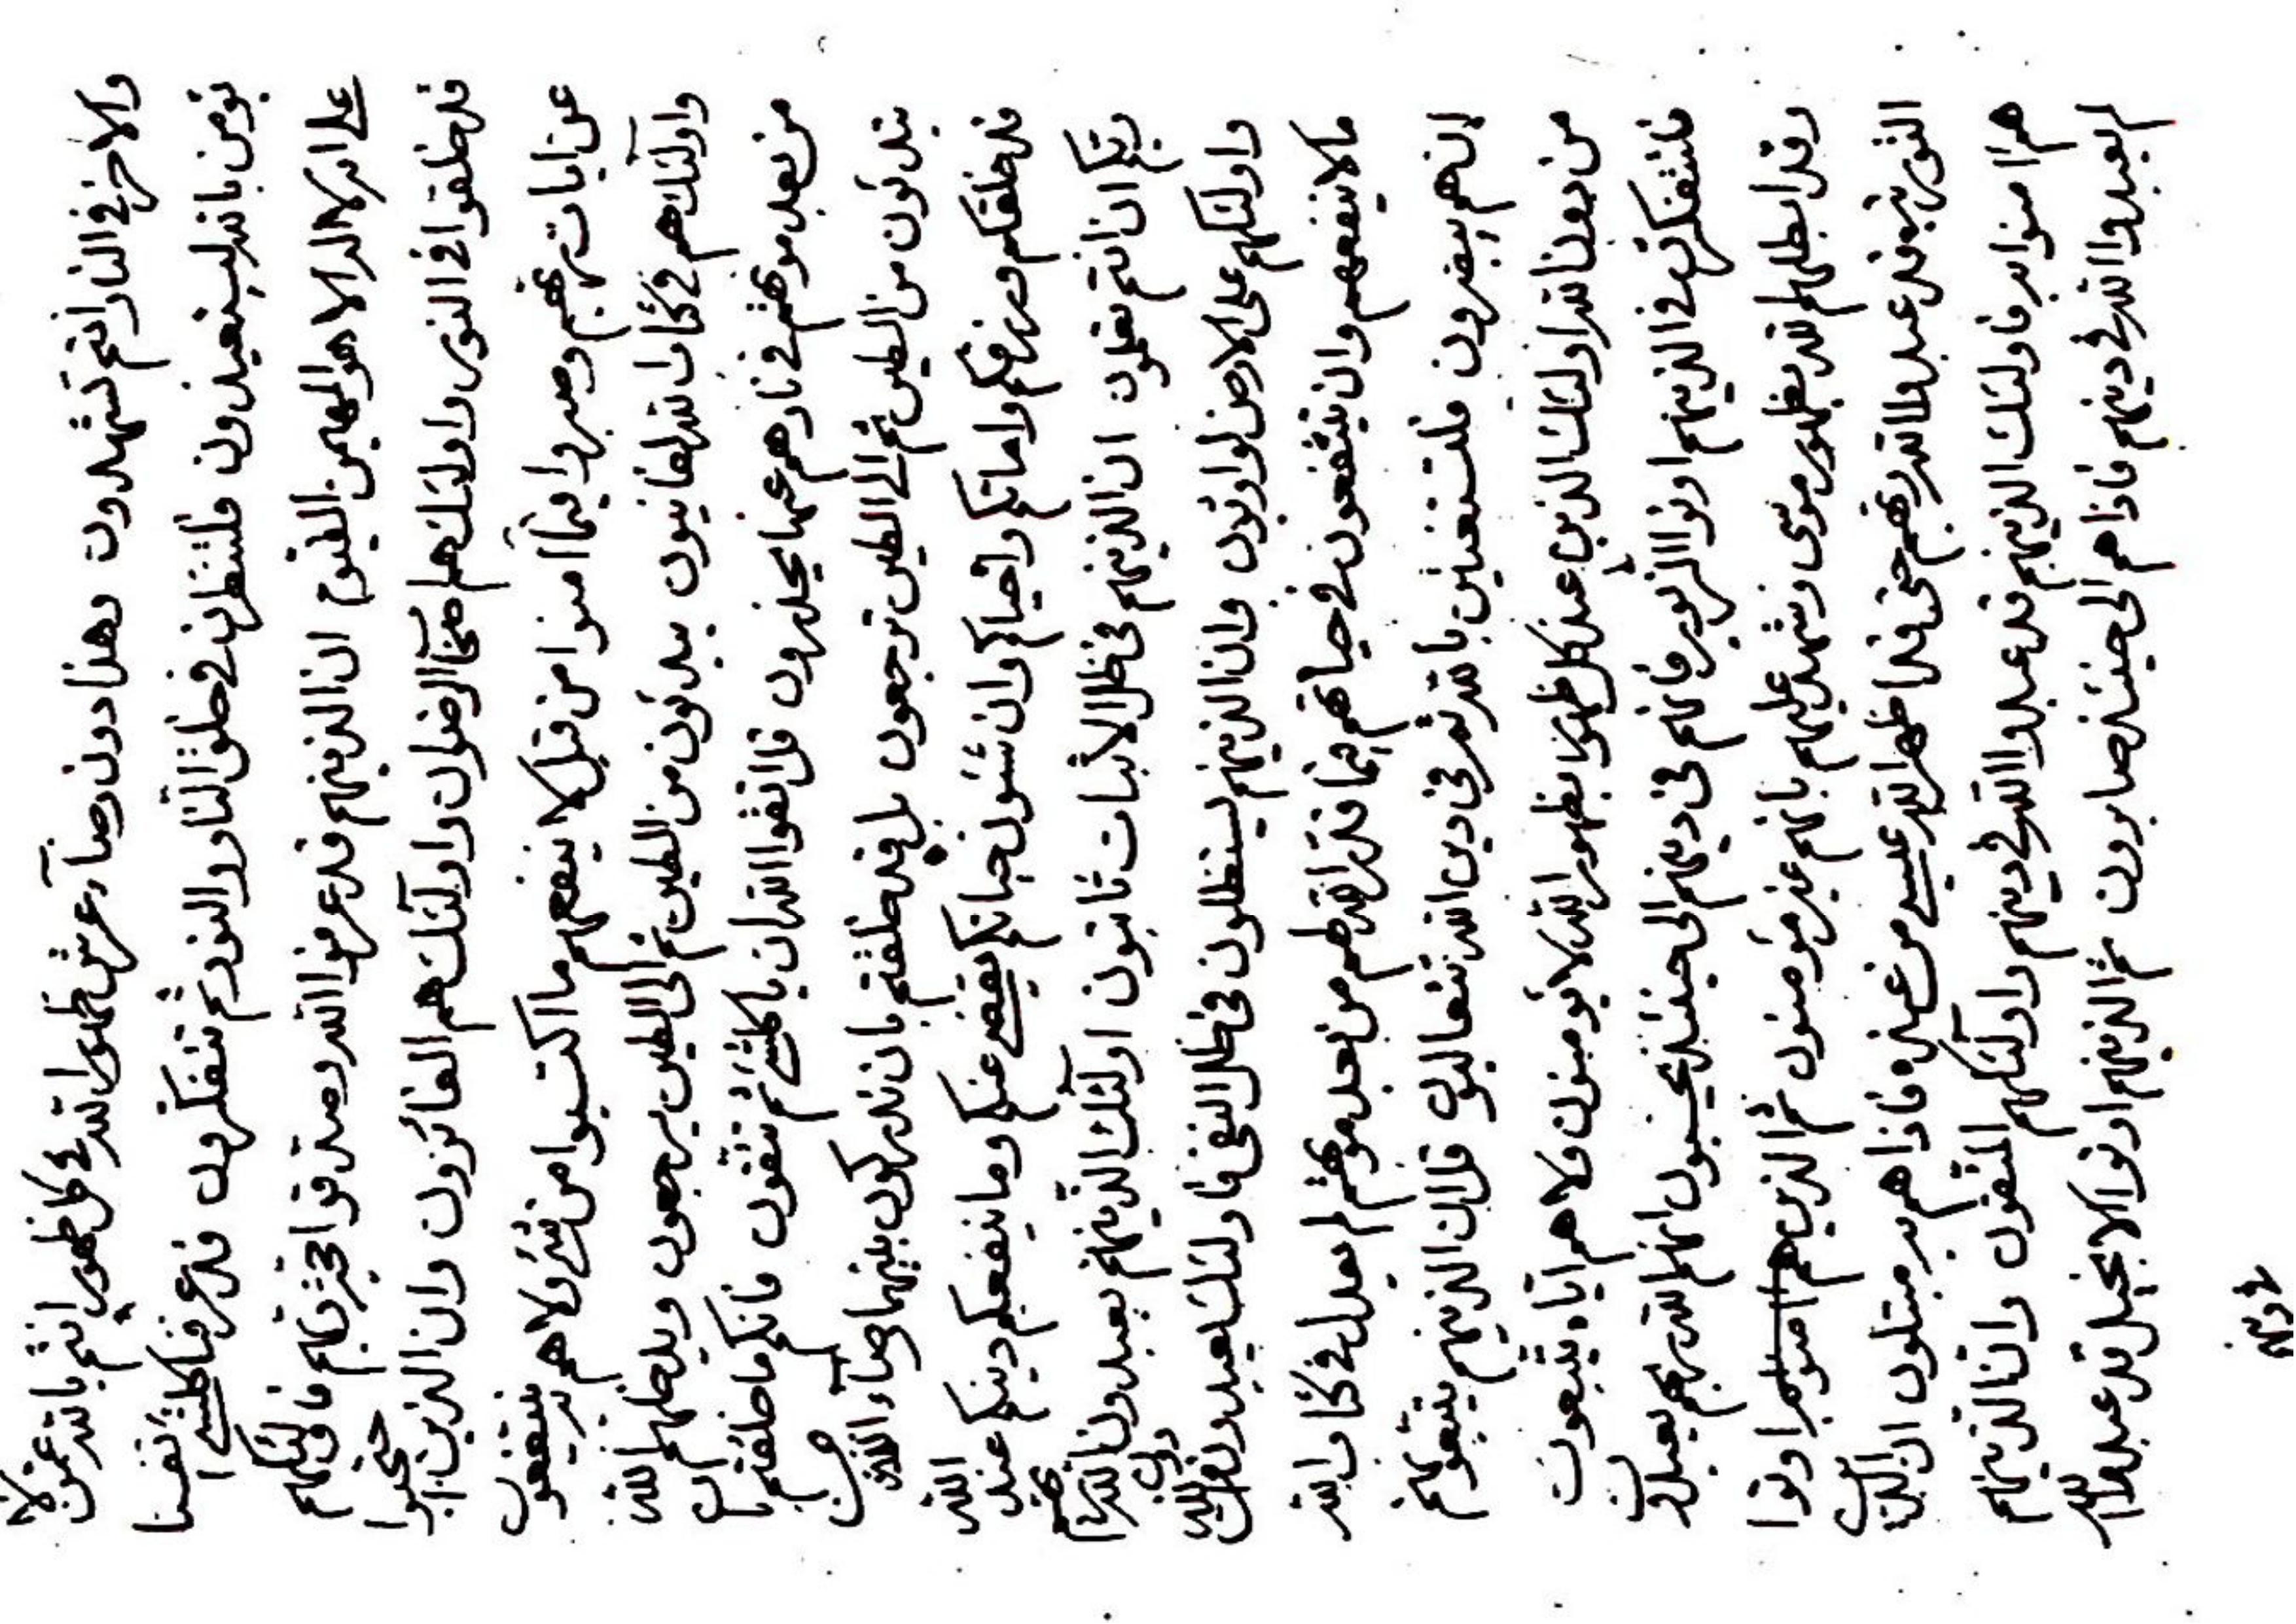 والاخر في النار انتم تشهدون وهذا دون رضاء عرش ظهور الله في كل ظهور انتم بالله عنه لا
تومن بالله ليستعيذون فلتنظرن في خلق النار والنور ثم تتفكرون قد عرفنا كلشيء نفسنا
على انه لا اله الا هو المهيمن القيوم ان الذينهم قد عرفوا الله وصدقوا بحجة ربهم فاولئكهم
قد خلقوا في النور واولئك هم اصحاب الرضوان واولئك هم الفائزون وان الذين احتجبوا
عن ايات ربهم وصبروا فيما امنوا من قبل لا ينفعهم ما اكتسبوا من شيء ولا هم به ينتفعون
واولئك هم في كتاب الله لفانيون يبدئون من الطين ثم الى الطين يرجعون ويدخلهم الله
من بعد موتهم في نارهم عنها يحذرون قل اتقوا الله ان ياكلشيء ثم تتقون فانكم ما خلقتم بان
تبدئون من الطين ثم الى الطين ترجعون بل قد خلقتم بان تدركون بينهما رضاء الله من
قد خلقكم ورزقكم واماتكم واحياكم وان شئون حياتكم يقضي عنكم وما ينفعكم دينكم عند الله
ربكم ان انتم تعلمون ان الذينهم في ظل الاثبات ثابتون اولئك الذينهم يعبدون الله ربهم
واولئكهم على الارض لوارثون وان الذينهم يستظلون في ظل النفي فاولئك يعبدون من دون الله
ما لا ينفعهم وان ينتفعون في حياتهم فيما قدر الله لهم من بعد موتهم لم يعدل في كتاب الله
ان هم يبصرون فلتستعينن بالله ثم في دين الله تتعاليون قل ان الذينهم يتبعونهم
من دون الله اولئك الذين عند كل ظهور بظهور الله لا يؤمنون ولا هم اياه يتبعون
فلتتفكرن في الذينهم اوتوا الزبور فانهم في دينهم الى حينئذ يحسبون انهم لله ربهم يعبدون
وقد ابطلهم الله بظهور موسى وشهد عليهم بانهم غير مؤمنون ثم الذين هم امنوا به اوتوا
التورية قد عبدوا الله ربهم حتى قد اظهر الله عيسى من عنده فاذا هم به مبتلون ان الذين
هم امنوا به فاولئك الذينهم قد عبدوا الله في دينهم واولئكهم المتقون وان الذينهم
لم يعبدوا الله في دينهم فاذا هم الى حينئذ صابرون ثم الذينهم اوتوا الانجيل قد عبدوا الله
في دينهم